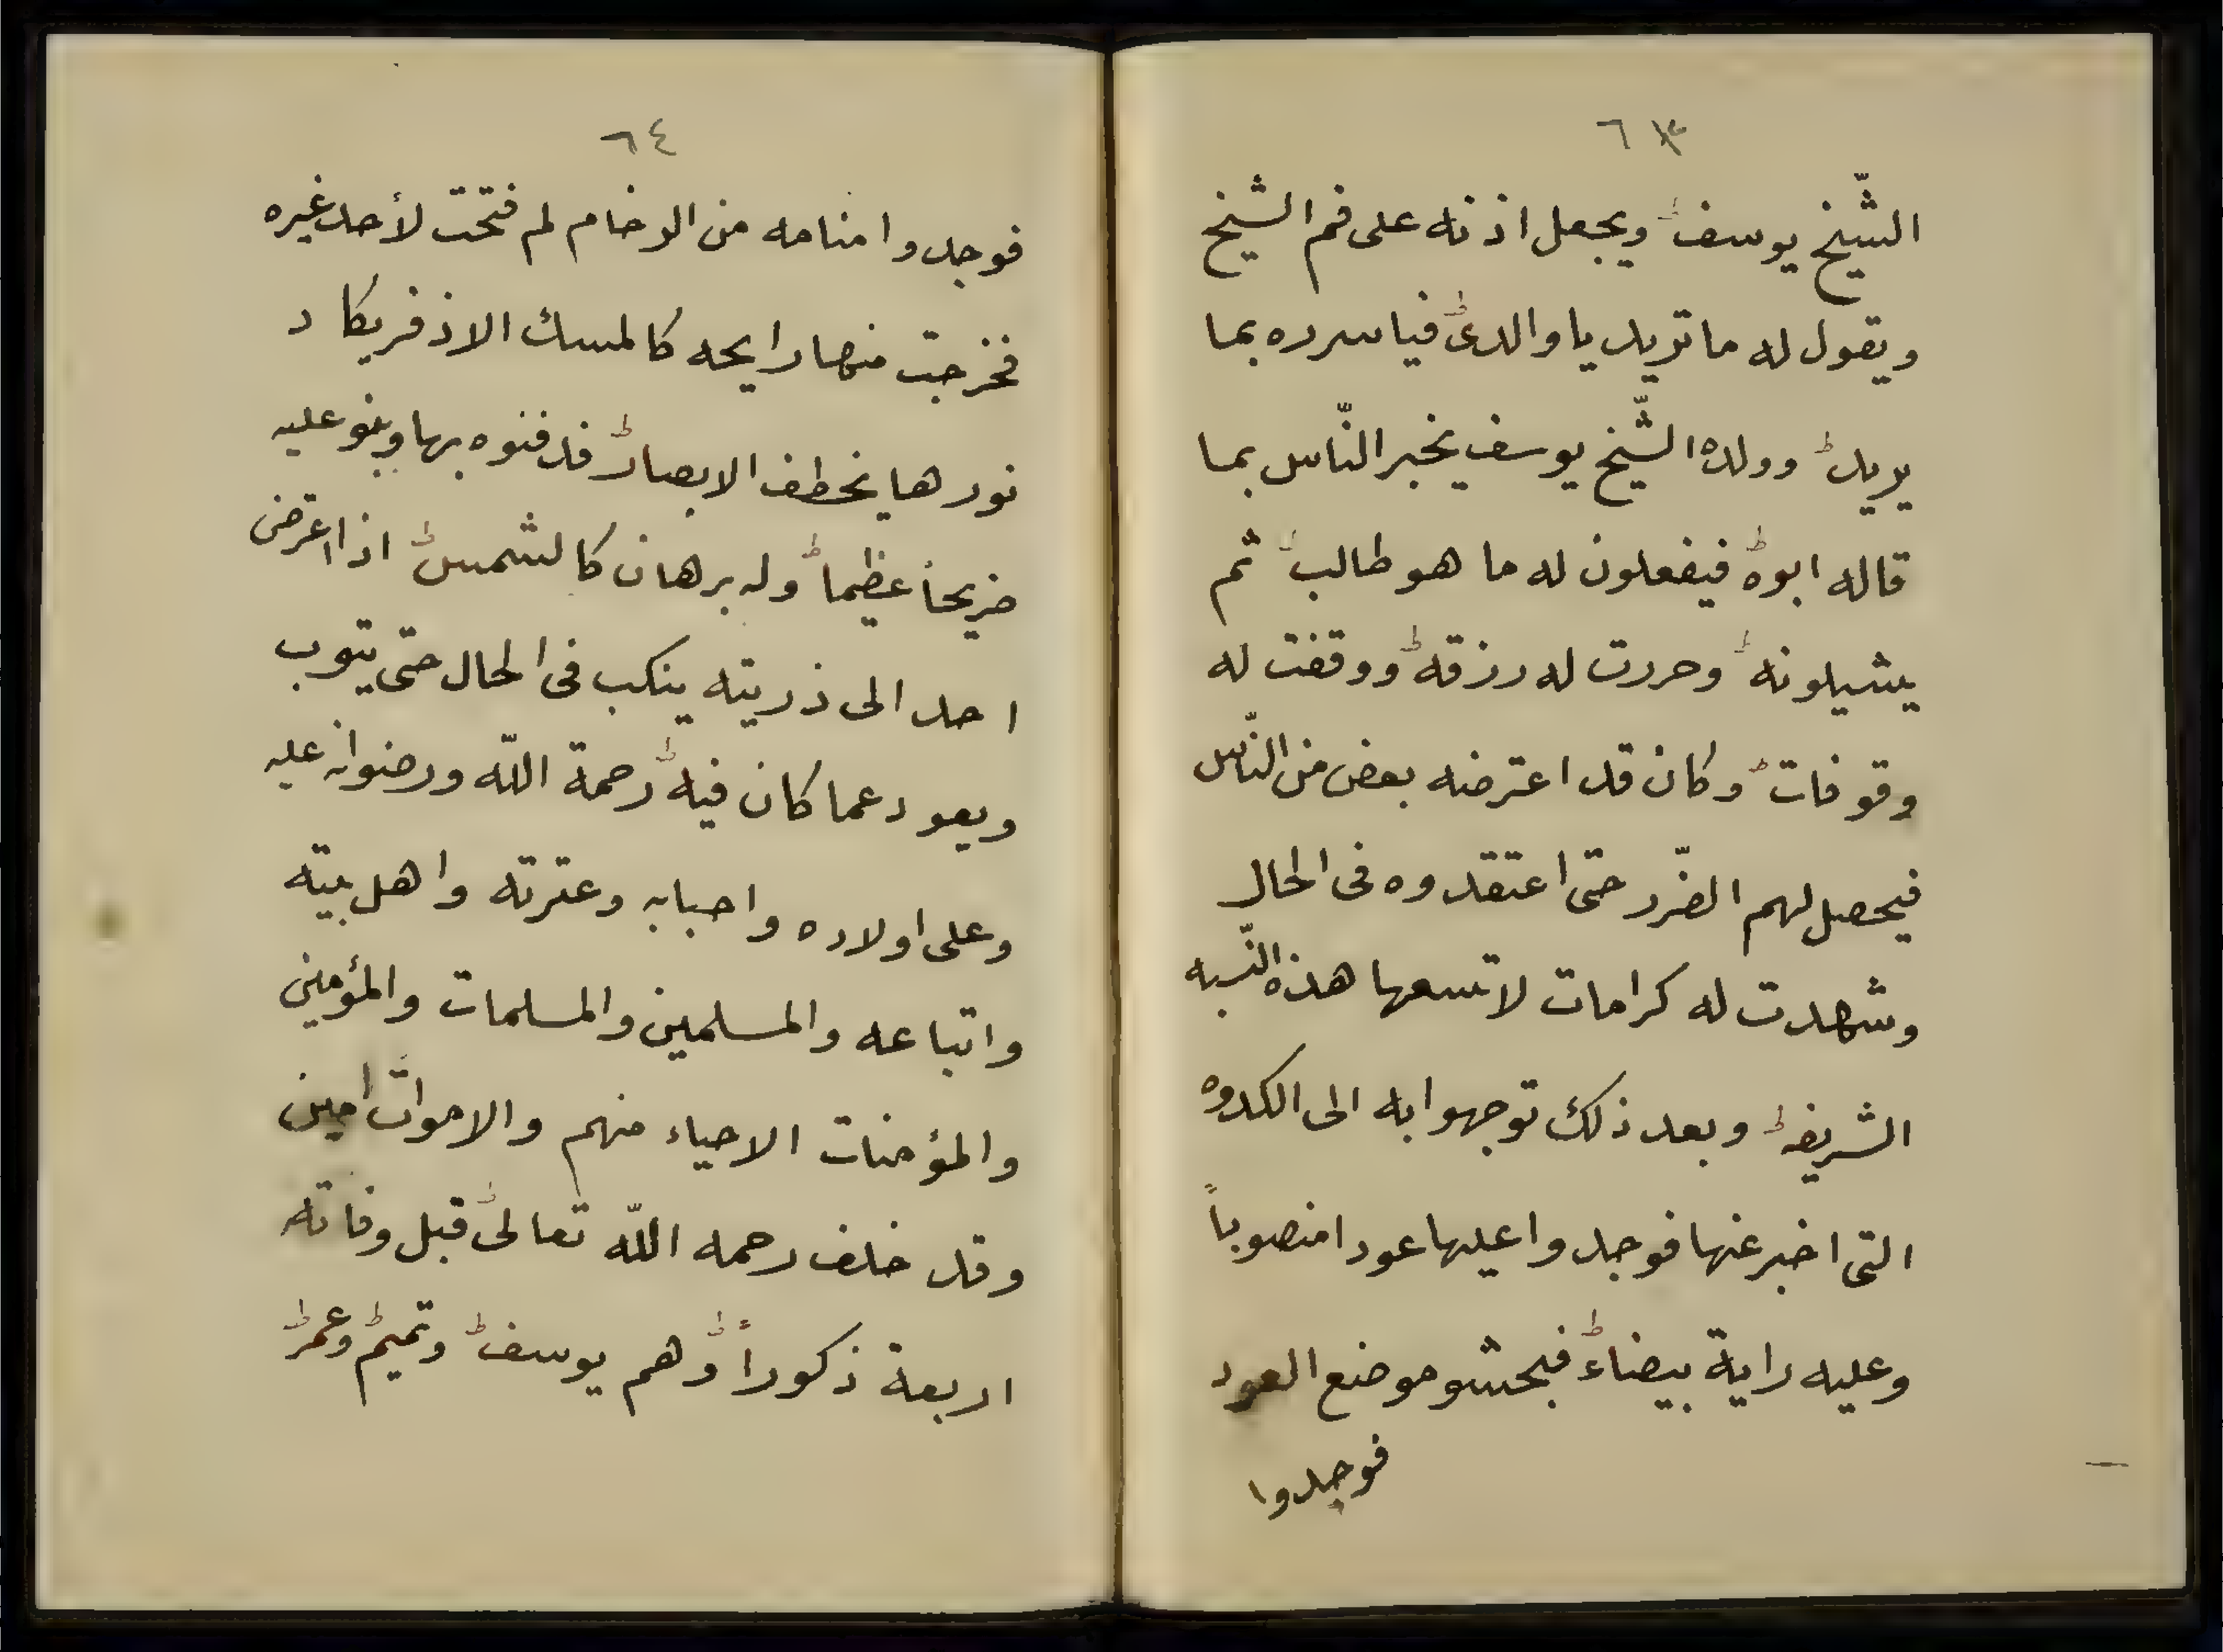 ٦٣
الشّيخ يوسف ويجعل اذنه على فم الشيخ
ويقول له ما تريد يا والدى فياسرره بما
يريد وولده الشّيخ يوسف يخبر النّاس بما
قاله ابوه فيفعلون له ما هو طالب ثم
يشيلونه وحررت له رزقه ووقفت له
وقوفات وكان قد اعترضه بعض من النّاس
فيحصل لهم الضّرر حتى اعتقدوه فى الحال
وشهدت له كرامات لا تسعها هذه النّسبه
الشريفه وبعد ذلك توجهوا به الى الكدوه
التى اخبر عنها فوجدوا عليها عودا منصوباً
وعليه راية بيضاء فبحشو موضع العود
فوجدوا
٦٤
فوجدوا منامه من الرخام لم فتحت لأحد غيره
فخرجت منها رايحه كالمسك الاذفر يكاد
نورها يخطف الابصار فدفنوه بها وبنو عليه
ضريحاً عظيما وله برهان كالشمس اذا اعترض
احد الى ذريته ينكب فى الحال حتى يتوب
ويعود عما كان فيه رحمة اللّه ورضوانه عليه
وعلى اولاده واحبابه وعترته واهل بيته
واتباعه والمسلمين والمسلمات والمؤمنين
والمؤمنات الاحياء منهم والاموات امين
وقد خلف رحمه اللّه تعالى قبل وفاته
اربعة ذكوراً وهم يوسف وتميم وعمر